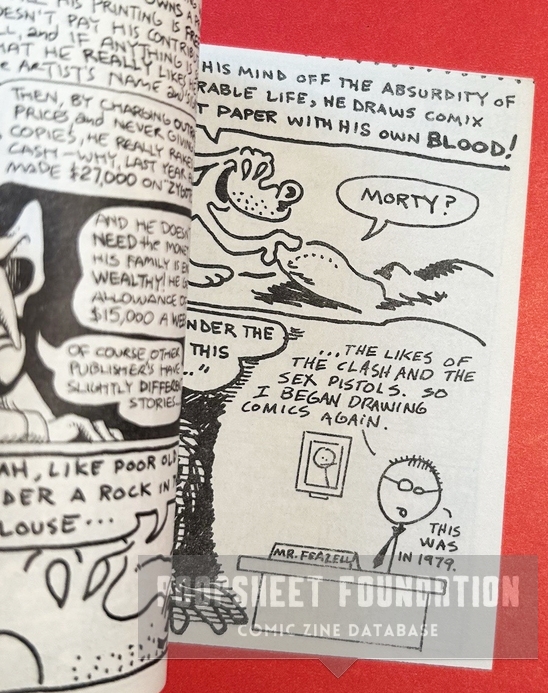 OWNS A
HIS PRINTING IS FREE
DOESN'T PAY HIS CONTRIB
and IF ANYTHING IS
HAT HE REALLY LIKES, HE
ARTIST'S NAME and
THEN, BY CHARGING
PRICES and NEVER GIVING
COPIES, HE REALLY RAKES
CASH—WHY, LAST YEAR
MADE $27,000 ON
AND HE DOESN'T
NEED the MONEY
HIS FAMILY IS
WEALTHY! HE
ALLOWANCE OF
$15,000 A WEEK
OF COURSE, OTHER
PUBLISHER'S HAVE
SLIGHTLY DIFFEREN
STORIES...
AH, LIKE POOR OLD
DER A ROCK IN
LOUSE...
HIS MIND OFF THE ABSURDITY OF
RABLE LIFE, HE DRAWS COMIX
T PAPER WITH HIS OWN BLOOD!
MORTY?
NDER THE
THIS
..."
...THE LIKES OF
THE CLASH AND THE
SEX PISTOLS. SO
I BEGAN DRAWING
COMICS AGAIN.
THIS
WAS
IN 1979.
MR. FEAZELL
BROADSHEET FOUNDATION
COMIC ZINE DATABASE